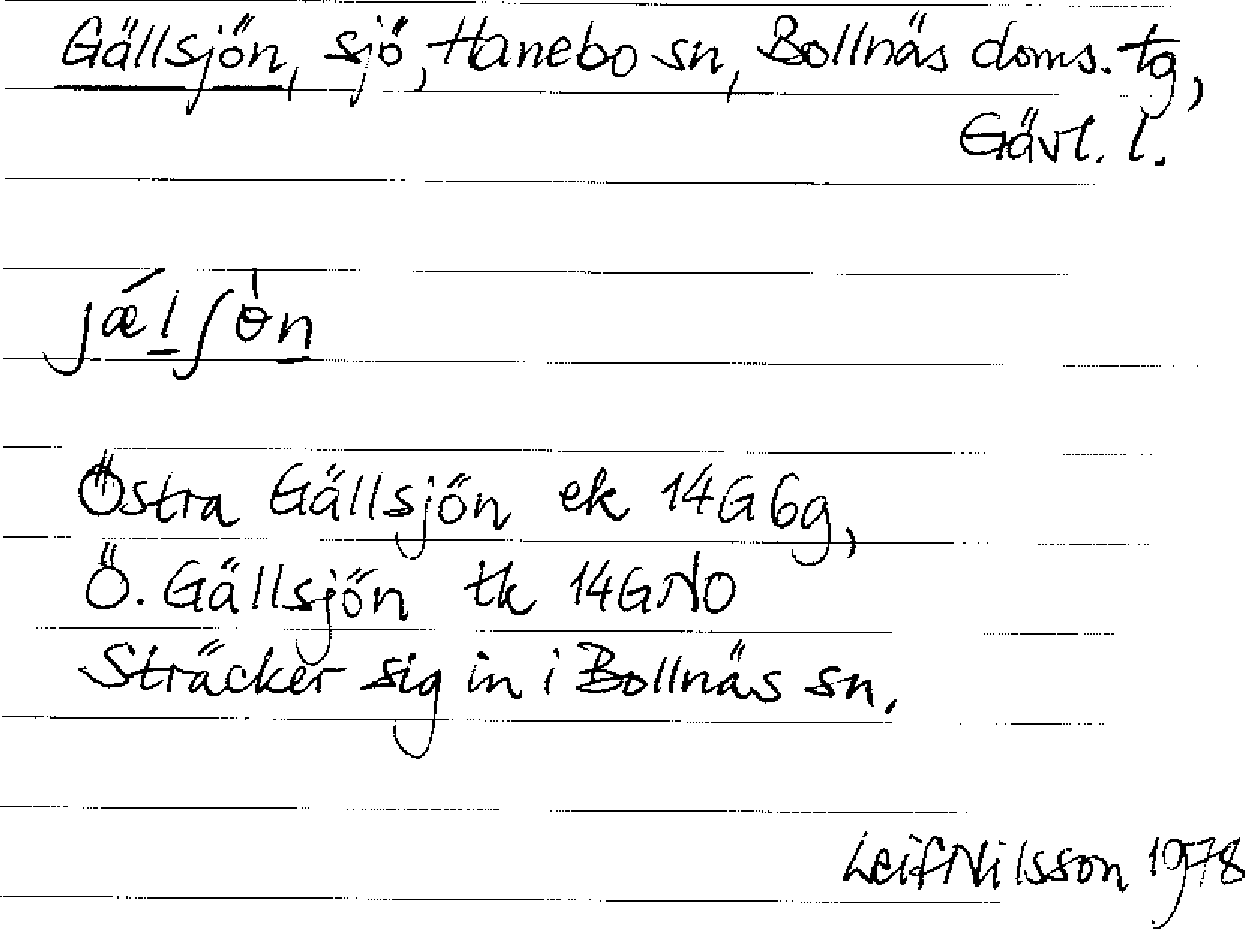 Gällsjön, sjö, Hanebo sn, Bollnäs doms. tg,
Gävl. l.
jǽl̲ʃɵ̀n̲
Östra Gällsjön ek 14G6g,
Ö. Gällsjön tk 14GNO
Sträcker sig in i Bollnäs sn.
Leif Nilsson 1978